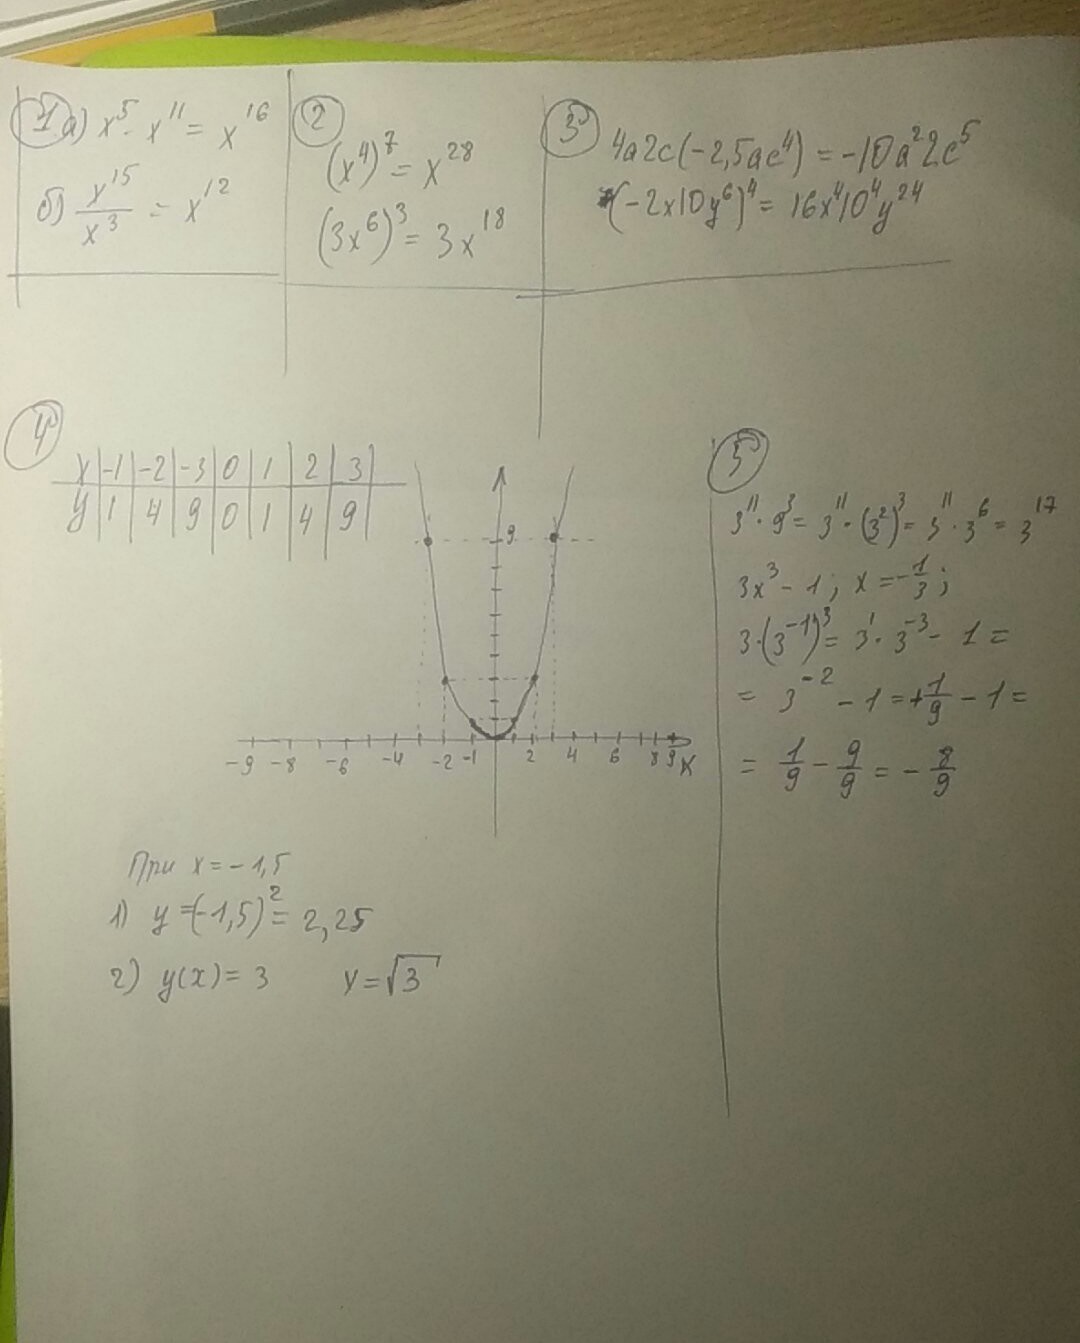 1 а) x⁵ · x¹¹ = x¹⁶
б) x¹⁵/x³ = x¹²
2
(x⁴)⁷ = x²⁸
(3x⁶)³ = 3x¹⁸
3
4a2c(-2,5ac⁴) = -10a²2c⁵
(-2x10y⁶)⁴ = 16x⁴10⁴y²⁴
4
x | -1 | -2 | -3 | 0 | 1 | 2 | 3
y | 1 | 4 | 9 | 0 | 1 | 4 | 9
9
-9 -8 -6 -4 -2 -1 2 4 6 8 9 X
При x = -1,5
1) y = (-1,5)² = 2,25
2) y(x) = 3 y = √3
5
3¹¹ · 9³ = 3¹¹ · (3²)³ = 3¹¹ · 3⁶ = 3¹⁷
3x³ - 1; x = -1/3;
3 · (3⁻¹)³ = 3¹ · 3⁻³ - 1 =
= 3⁻² - 1 = +1/9 - 1 =
= 1/9 - 9/9 = -8/9